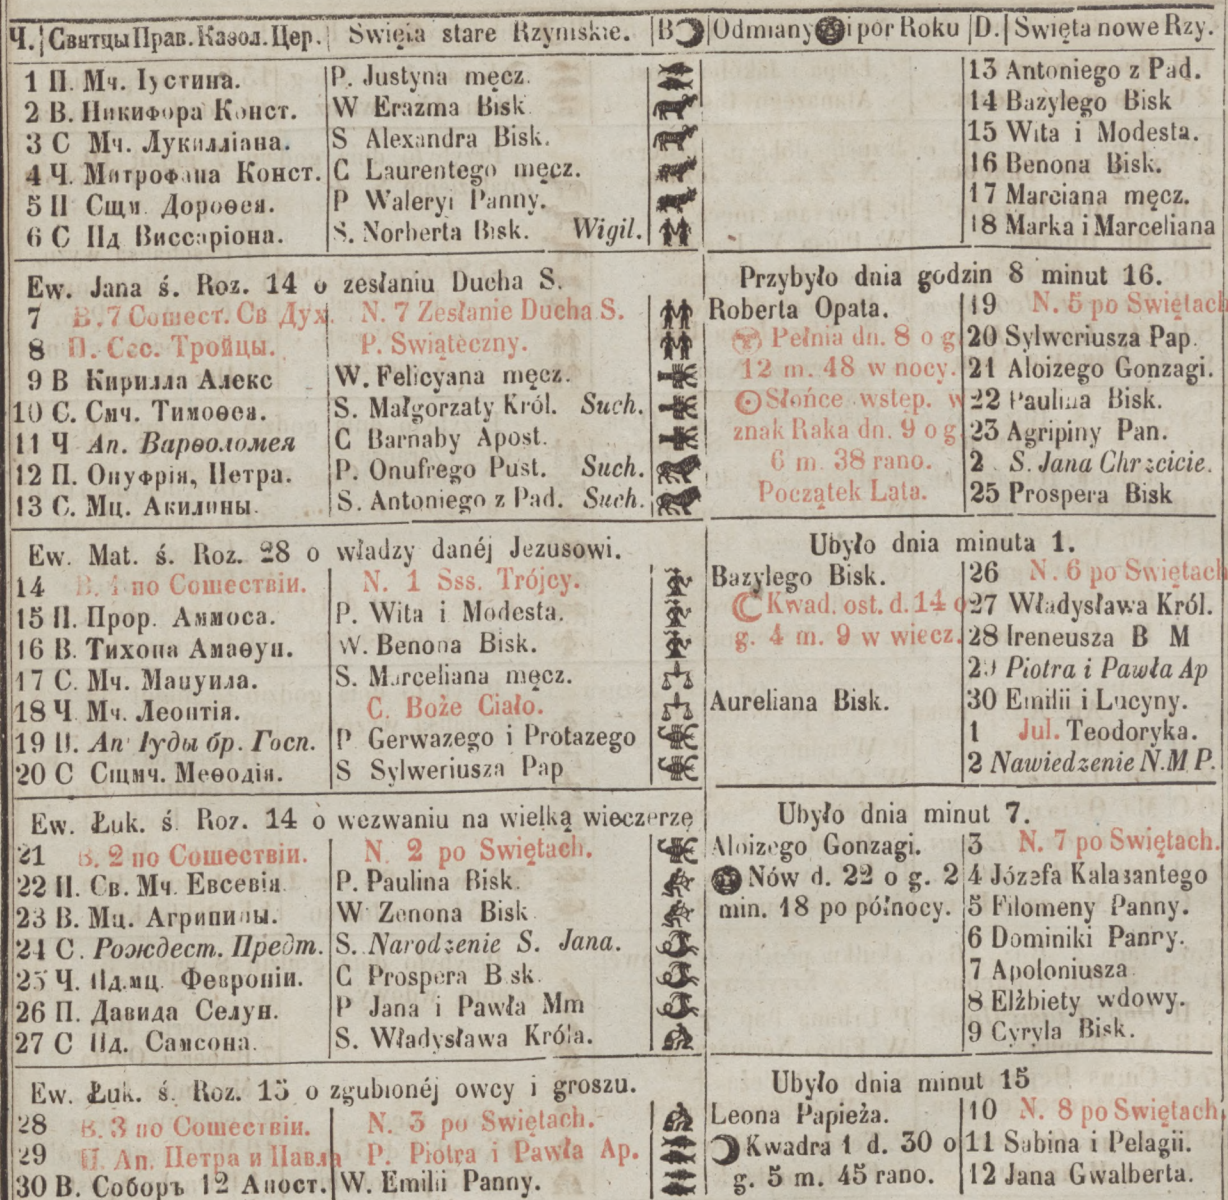 Ч. Свитцы Прав. Каѳол. Цер. Święta stare Rzymskie. B Odmiany i por Roku D. Święta nowe Rzy.
1 П. Мч. Іустина. P. Justyna męcz. 13 Antoniego z Pad.
2 В. Никифора Конст. W Erazma Bisk 14 Bazylego Bisk
3 С Мч. Лукилліана. S Alexandra Bisk. 15 Wita i Modesta.
4 Ч. Митрофана Конст. C Laurentego męcz. 16 Benona Bisk.
5 П Сщм. Дороѳея. P Waleryi Panny. 17 Marciana męcz.
6 С Пд Виссаріона. S. Norberta Bisk. Wigil. 18 Marka i Marceliana
Ew. Jana ś. Roz. 14 o zesłaniu Ducha S. Przybyło dnia godzin 8 minut 16.
7 В. 7 Сошест. Св Дух. N. 7 Zesłanie Ducha S. Roberta Opata. 19 N. 5 po Swiętach
8 П. Сес. Тройцы. P. Swiąteczny. Pełnia dn. 8 o g 20 Sylweriusza Pap.
9 В Кирилла Алекс W. Felicyana męcz. 12 m. 48 w nocy. 21 Aloizego Gonzagi.
10 С. Смч. Тимоѳея. S. Małgorzaty Król. Such. Słońce wstęp. w 22 Paulina Bisk.
11 Ч Ап. Варѳоломея C Barnaby Apost. znak Raka dn. 9 o g 23 Agripiny Pan.
12 П. Онуфрія, Петра. P. Onufrego Pust. Such. 6 m. 38 rano. 2 S. Jana Chrzcicie.
13 С. Мц. Акилины. S. Antoniego z Pad. Such. Początek Lata. 25 Prospera Bisk
Ew. Mat. ś. Roz. 28 o władzy danéj Jezusowi. Ubyło dnia minuta 1.
14 В. 1 по Сошествіи. N. 1 Sss. Trójcy. Bazylego Bisk. 26 N. 6 po Swiętach
15 П. Прор. Аммоса. P. Wita i Modesta. Kwad. ost. d. 14 o 27 Władysława Król.
16 В. Тихона Амаѳун. W. Benona Bisk. g. 4 m. 9 w wiecz. 28 Ireneusza B M
17 С. Мч. Мануила. S. Marceliana męcz. 29 Piotra i Pawła Ap
18 Ч Мч. Леонтія. C. Boże Ciało. Aureliana Bisk. 30 Emilii i Lucyny.
19 П. Ап Іуды бр. Госп. P Gerwazego i Protazego 1 Jul. Teodoryka.
20 С Сщмч. Меѳодія. S Sylweriusza Pap 2 Nawiedzenie N.M P.
Ew. Łuk. ś. Roz. 14 o wezwaniu na wielką wieczerzę Ubyło dnia minut 7.
21 В. 2 по Сошествіи. N. 2 po Swiętach. Aloizego Gonzagi. 3 N. 7 po Swiętach.
22 П. Св. Мч. Евсевія P. Paulina Bisk. Nów d. 22 o g. 2 4 Józefa Kalasantego
23 В. Мц. Агрипины. W Zenona Bisk min. 18 po północy. 5 Filomeny Panny.
24 С. Рождест. Предт. S. Narodzenie S. Jana. 6 Dominiki Panny.
25 Ч. Пд.мц. Февроніи. C Prospera Bisk. 7 Apoloniusza
26 П. Давида Селун. P Jana i Pawła Mm 8 Elżbiety wdowy.
27 С Пд. Самсона. S. Władysława Króla. 9 Cyryla Bisk.
Ew. Łuk. ś. Roz. 15 o zgubionéj owcy i groszu. Ubyło dnia minut 15
28 В. 3 по Сошествіи. N. 3 po Swiętach. Leona Papieża. 10 N. 8 po Swiętach,
29 П. Ап. Петра и Павла P. Piotra i Pawła Ap. Kwadra 1 d. 30 o 11 Sabina i Pelagii.
30 В. Соборъ 12 Апост. W. Emilii Panny. g. 5 m. 45 rano. 12 Jana Gwalberta.